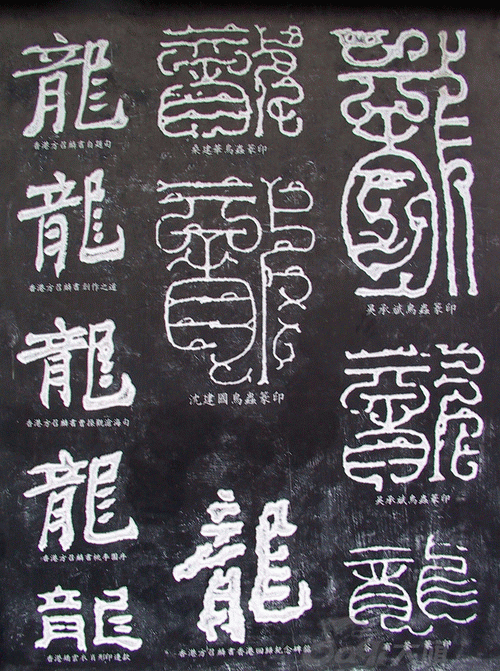 龍
香港方召麟書自題句
龍
香港方召麟書創作之道
龍
香港方召麟書曹操觀滄海句
龍
香港方召麟書
龍
香港雲水肖形印邊款
龍
桑建華鳥蟲篆印
龍
沈建國鳥蟲篆印
龍
香港方召麟書香港回歸紀念碑龍
龍
吳承斌鳥蟲篆印
龍
吳承斌鳥蟲篆印
龍
谷有荃篆印